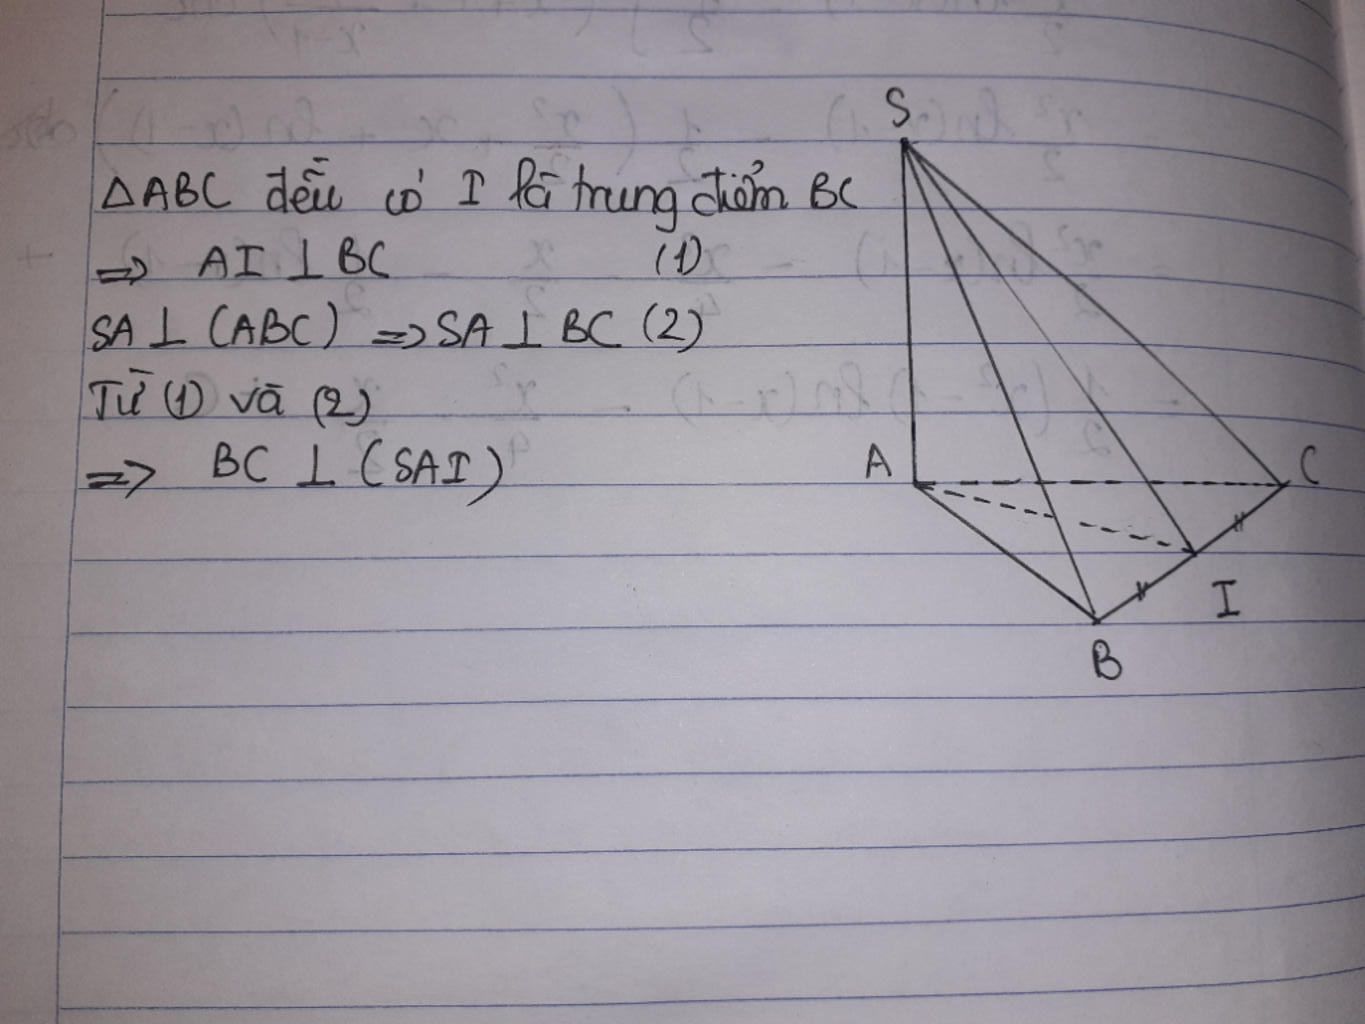 △ABC đều có I là trung điểm BC
=> AI ⊥ BC (1)
SA ⊥ (ABC) => SA ⊥ BC (2)
Từ (1) và (2)
=> BC ⊥ (SAI)
S
A
C
I
B